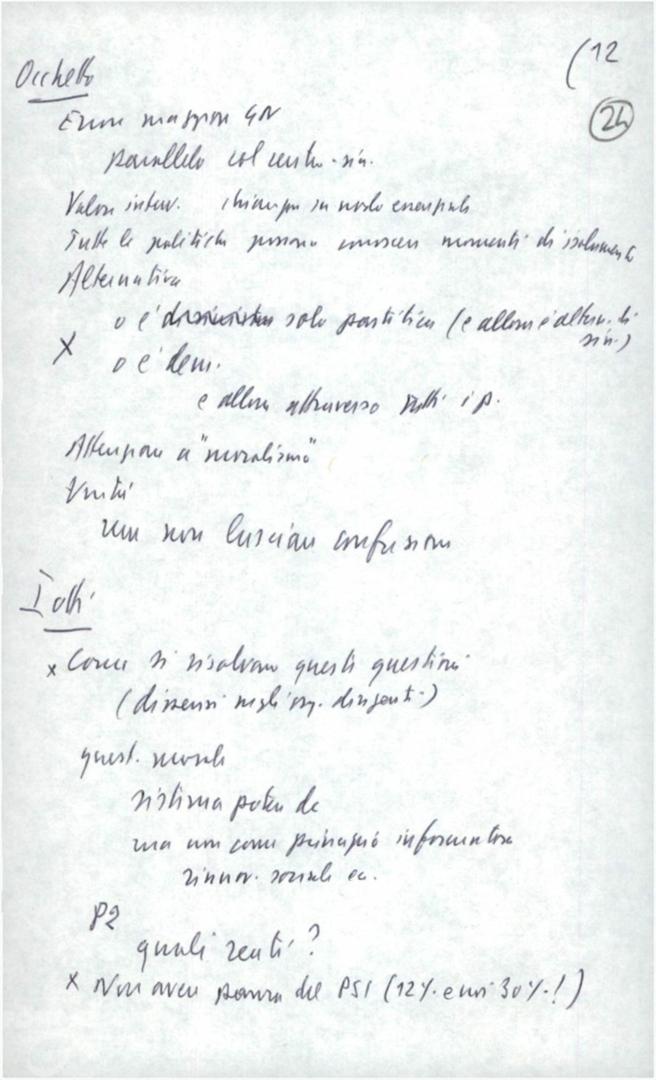 (12
Occhetto
24
Errore maggiore GN
parallelo col centro-sin.
Valore interv.
Tutte le politiche possono conoscere momenti di isolamento
Alternativa
o è solo partitica (e allora è altern. di
sin.)
X o è dem.
e allora attraverso tutti i p.
Attenzione a "moralismo"
Unità
ma non lasciare confusione
Iotti
x Come si risolvono questi questioni
(dissensi negli org. dirigenti)
quest. morale
sistema potere dc
ma non come principio informatore
rinnov. sociale ec.
P2
quali reati?
x Non avere paura del PSI (12% e noi 30%!)